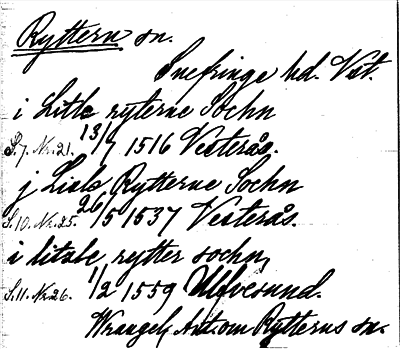 Ryttern sn.
Snefringe hd. Vstm.
i Litle ryterne Sochn
S. 7. Nr. 21. 13/7 1516 Vesterås.
j Lisls Rytterne Sochn
S. 10. Nr. 25. 26/5 1537 Vesterås.
i litzle rytter sochn,
S. 11. Nr. 26. 1/2 1559 Ulfvesund.
Wrangel, Ant. om Rytterns sn.